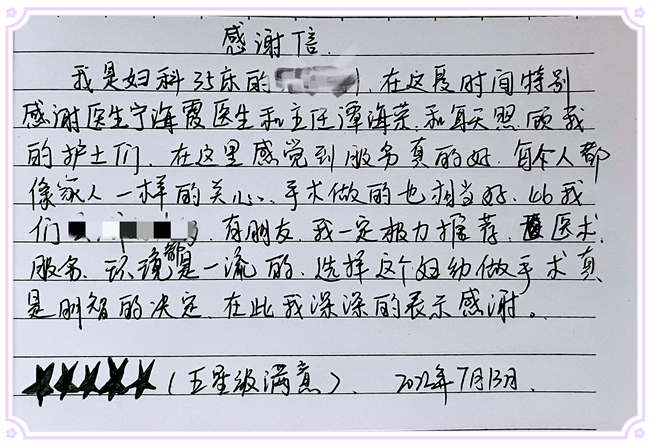 感谢信
我是妇科35床的 在这段时间特别
感谢医生宁海霞医生和主任谭海荣,和每天照顾我
的护士们 在这里感觉到服务真的好,每个人都
像家人一样的关心,手术做的也相当好,比我
们 有朋友,我一定极力推荐,医术,
服务,环境都是一流的,选择这个妇幼做手术真
是明智的决定,在此我深深的表示感谢。
★★★★★(五星级满意)、 2022年7月13日.